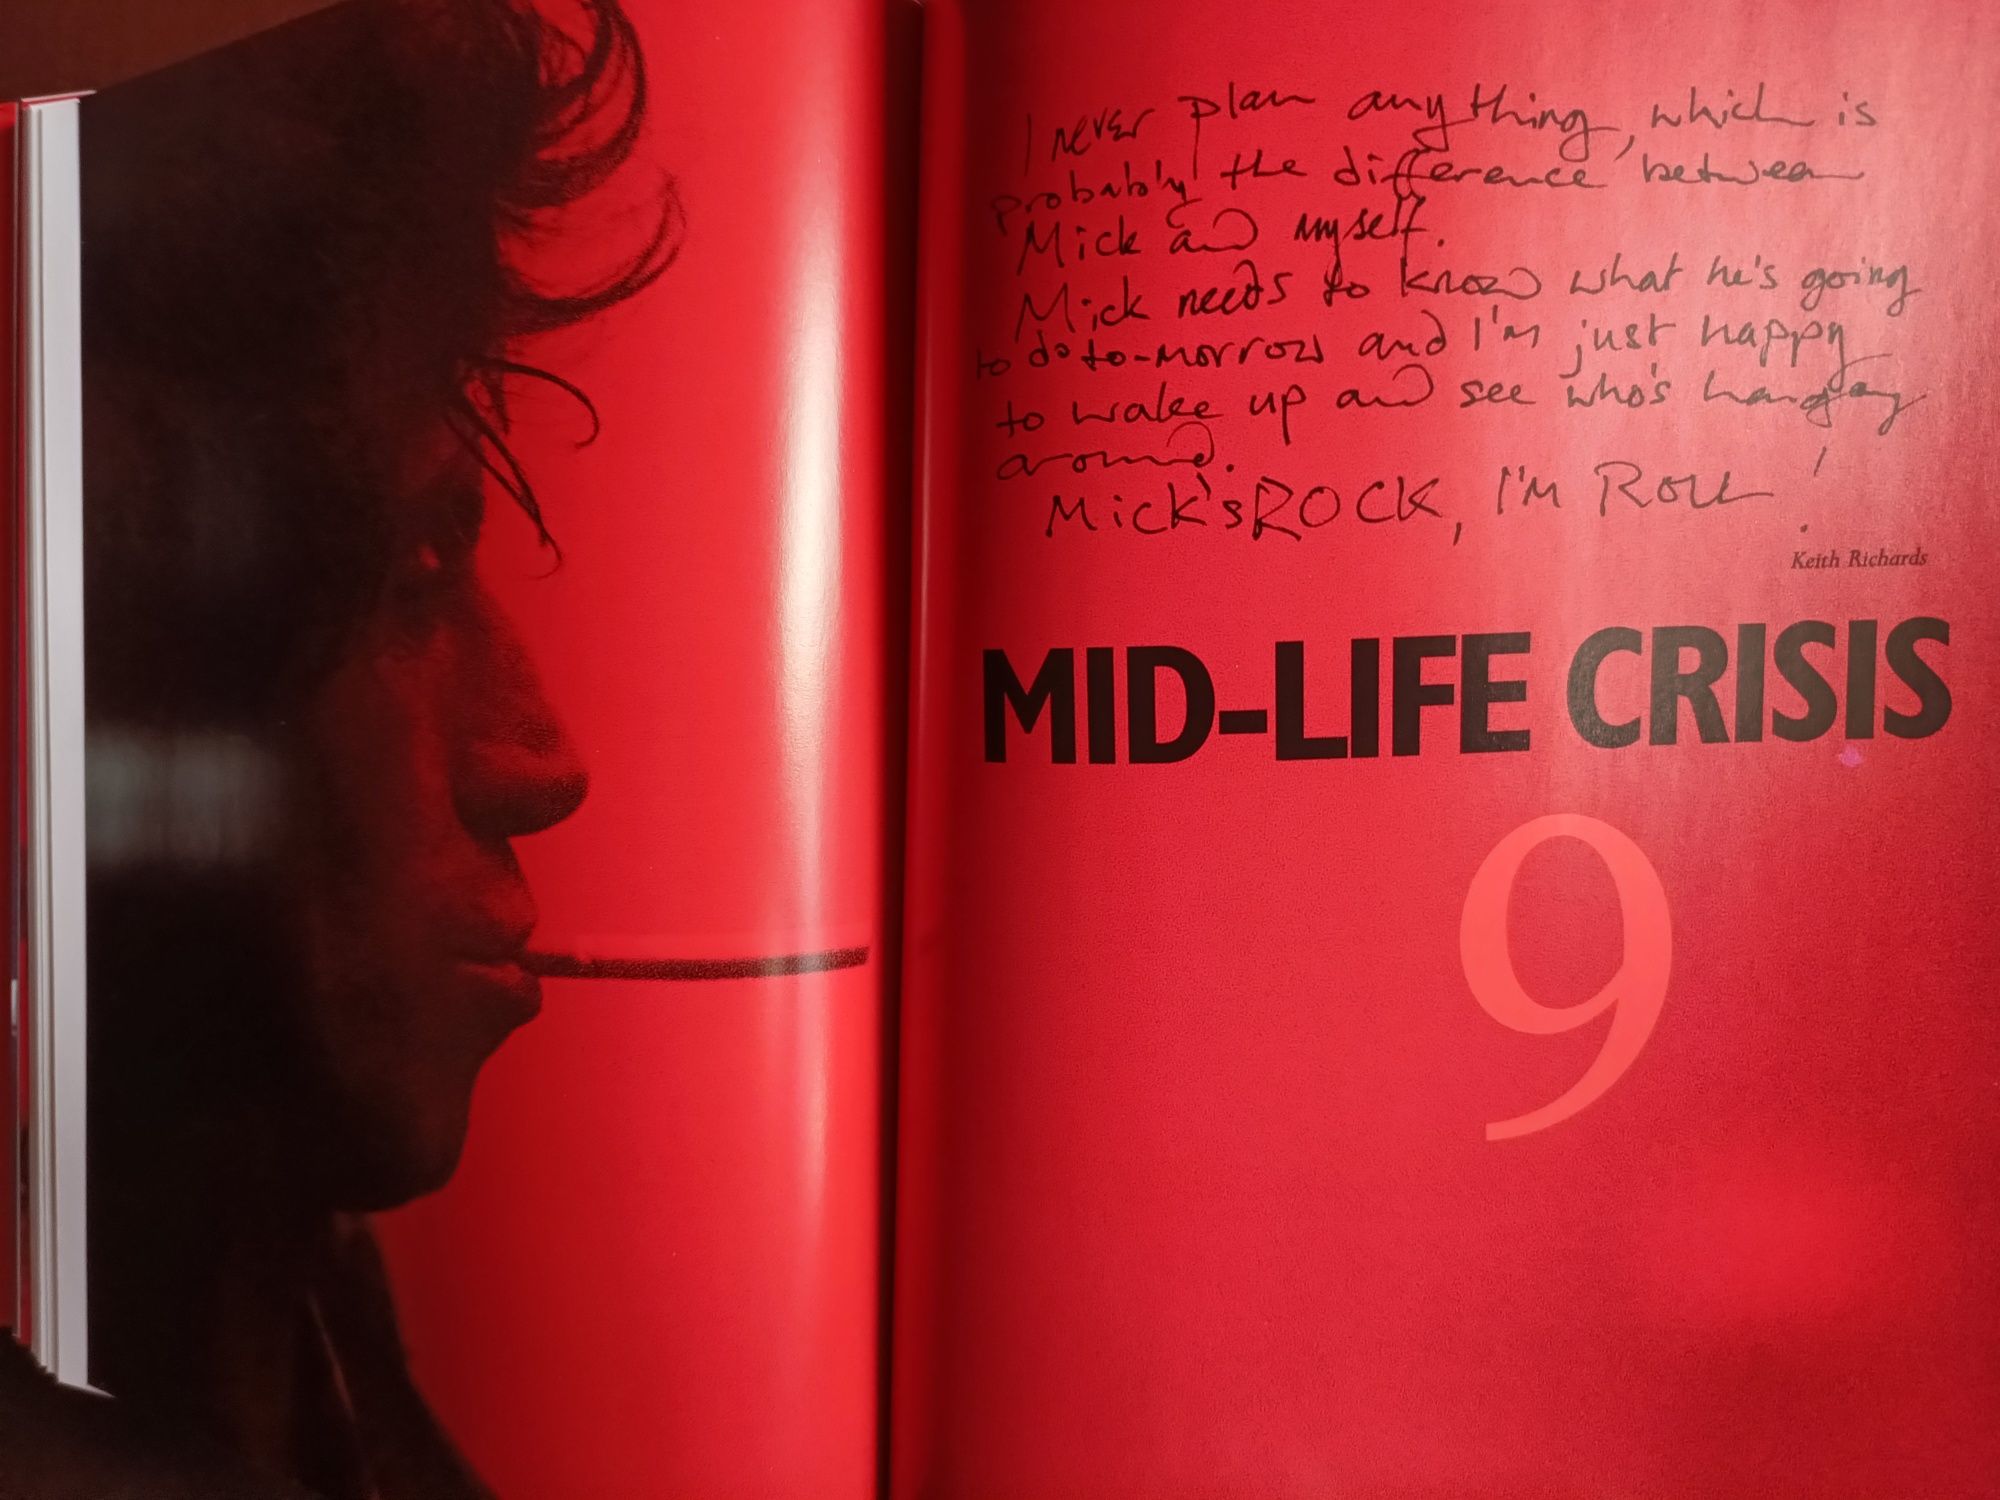 I never plan anything, which is
probably the difference between
Mick and myself.
Mick needs to know what he's going
to do to-morrow and I'm just happy
to wake up and see who's hanging
around.
Mick's ROCK, I'm ROLL!
Keith Richards
MID-LIFE CRISIS
9